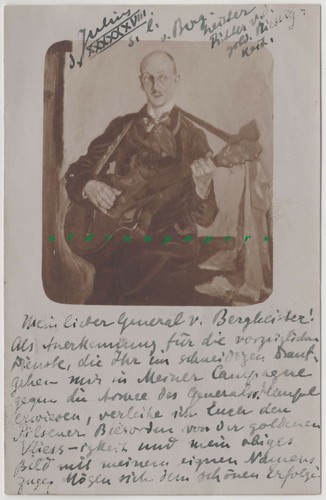 Julius
XXXXXVIII.
s. l. v. Berg-
meister
Ritter v.
gold.
Mein lieber General v. Bergmeister!
Als Anerkennung für die vorzüglichen
Dienste, die Ihr im schneidigen Drauf-
gehen mir in Meiner Campagne
gegen die Armee des Generals Hempel
erwiesen, verleihe ich Euch den
Pilsener Bierorden von der goldenen
Vliess-igkeit und mein obiges
Bild mit meinem eignen Namens
zuge. Mögen sich dem schönen Erfolge